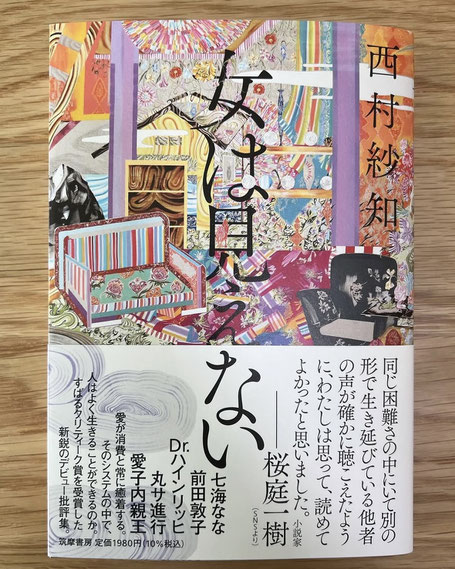 西村紗知
女は見えない
同じ困難さの中にいて別の
形で生き延びている他者
の声が確かに聴こえたよう
に、わたしは思って、読めて
よかったと思いました。
――桜庭一樹
小説家
(SNSより)
七海なな
前田敦子
Dr.ハインリッヒ
丸サ進行
愛子内親王
愛が消費と常に癒着する。
そのシステムの中で、
人はよく生きることができるのか。
すばるクリティーク賞を受賞した
新鋭のデビュー批評集。
筑摩書房 定価1980円(10%税込)